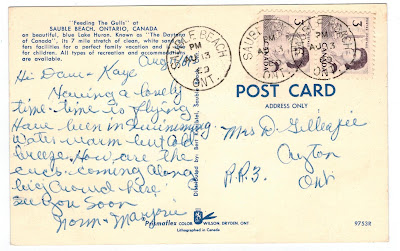 "Feeding The Gulls" at
SAUBLE BEACH, ONTARIO, CANADA
on beautiful, blue Lake Huron. Known as "The Daytona
of Canada", its 7 mile stretch of clean, white sand of-
fers facilities for a perfect family vacation and is
for children. All types of recreation and accommodations
are available.
Aug
Hi Dave & Kaye
Having a lovely
time. time is flying
Have been in swimming
Water warm but cold
breeze. How are the
cues. coming along
big crowd here
See you Soon
Norm & Marjorie
SAUBLE BEACH
PM
AU 13
ONT.
SAUBLE BEACH
PM
AU 13
ONT.
3
3
POST CARD
ADDRESS ONLY
Mrs D. Gillespie
Ayton
R.R.3.
Ont
Distributed by
Prismaflex COLOR WILSON, DRYDEN, ONT.
Lithographed in Canada
97538